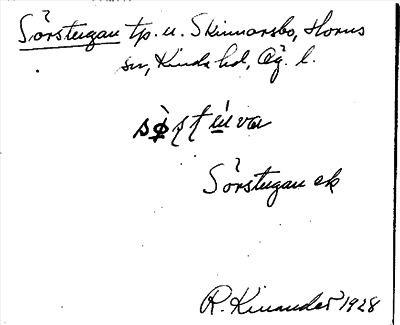 Sörstugan tp. u. Skinnarsbo, Horns
sn, Kinda hd, Ög. l.
Sörstugan ek
R. Kinander 1928